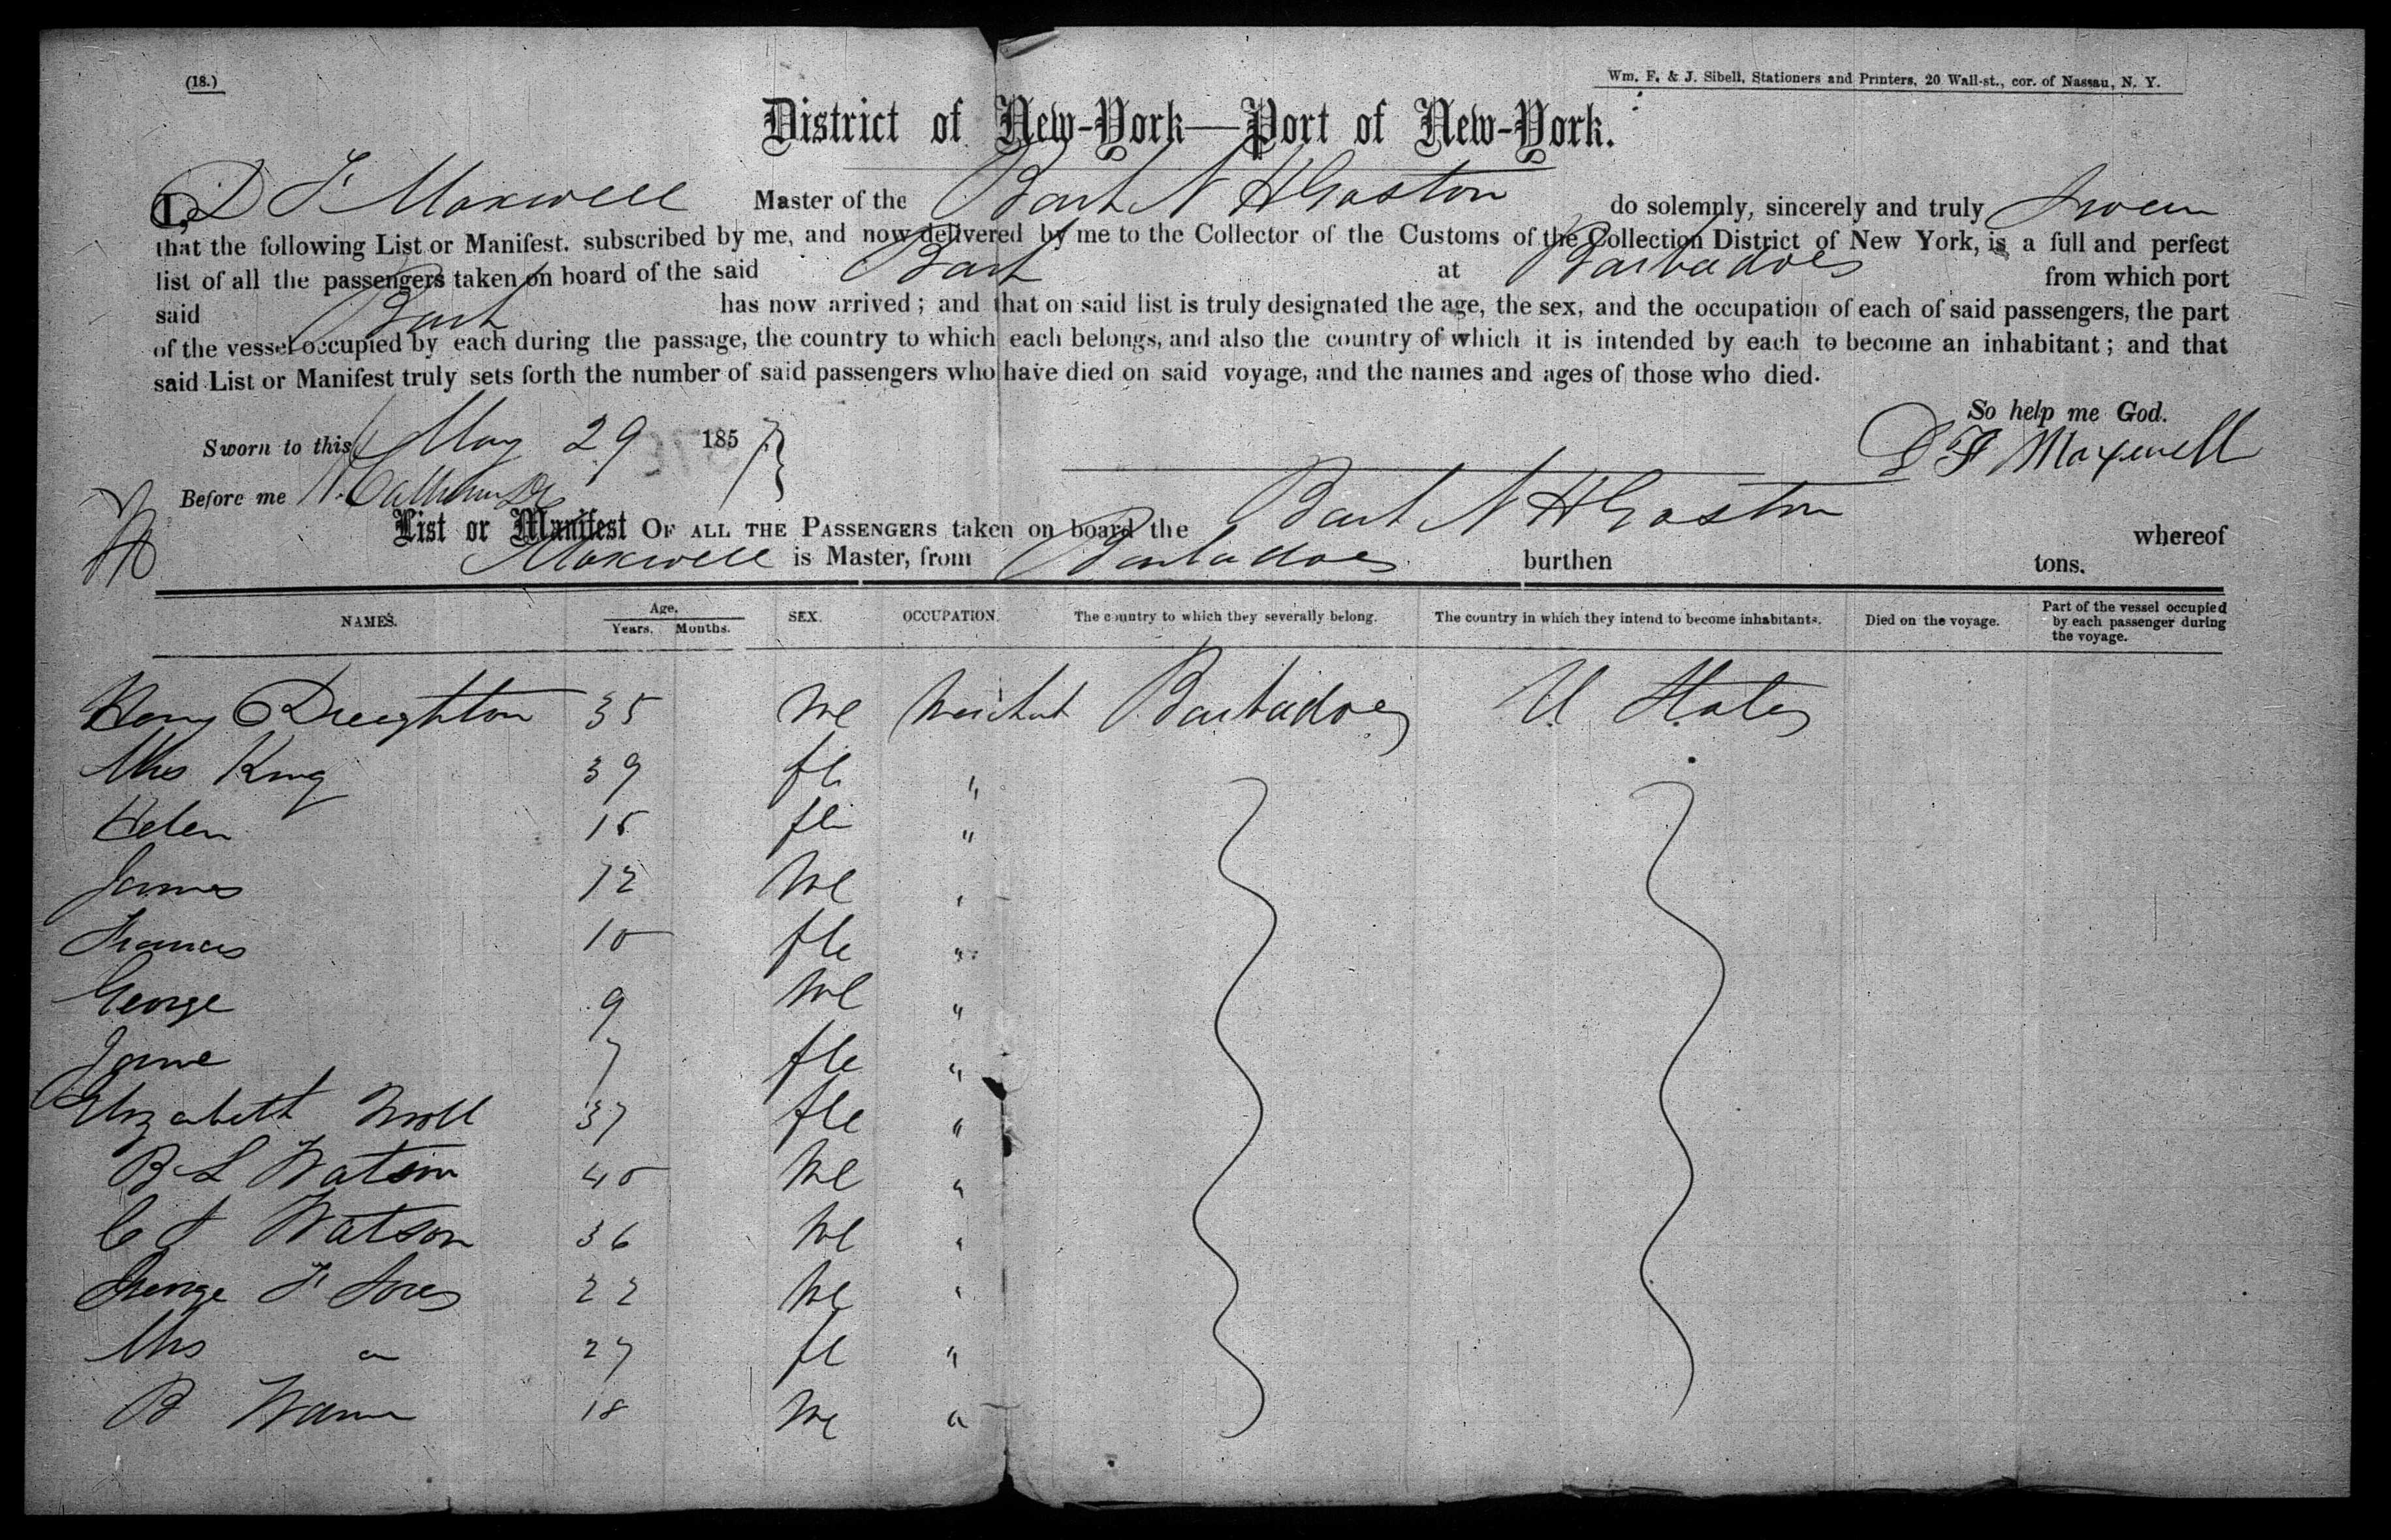 (18.)
Wm. F. & J. Sibell, Stationers and Printers, 20 Wall-st., cor. of Nassau, N. Y.
District of New-York—Port of New-York.
I, D F Maxwell Master of the Bark N H Gaston do solemnly, sincerely and truly swear
that the following List or Manifest. subscribed by me, and now delivered by me to the Collector of the Customs of the Collection District of New York, is a full and perfect
list of all the passengers taken on board of the said Bark at Barbadoes from which port
said Bark has now arrived; and that on said list is truly designated the age, the sex, and the occupation of each of said passengers, the part
of the vessel occupied by each during the passage, the country to which each belongs, and also the country of which it is intended by each to become an inhabitant; and that
said List or Manifest truly sets forth the number of said passengers who have died on said voyage, and the names and ages of those who died.
So help me God.
Sworn to this May 29 1857
D F Maxwell
Before me
List or Manifest OF ALL THE PASSENGERS taken on board the Bark N H Gaston whereof
Maxwell is Master, from Barbadoes burthen tons.
NAMES. Age, Years. Months. SEX. OCCUPATION. The country to which they severally belong. The country in which they intend to become inhabitants. Died on the voyage. Part of the vessel occupied by each passenger during the voyage.
35 Me Barbadoes U States
Mrs King 39 fle "
Helen 15 fle "
James 12 Me "
Frances 10 fle "
George 9 Me "
Jane 7 fle "
Elizabeth 37 fle "
B L Watson 40 Me "
C Watson 36 Me "
George F 22 Me "
Mrs " 27 fle "
B 18 Me "